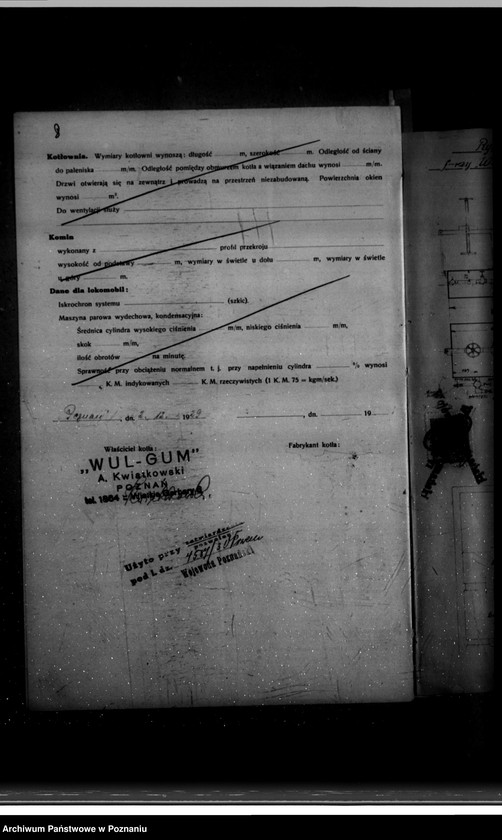 8
Kotłownia. Wymiary kotłowni wynoszą: długość m, szerokość m. Odległość od ściany
do paleniska m/m. Odległość pomiędzy obmurzem kotła a wiązaniem dachu wynosi m/m.
Drzwi otwierają się na zewnątrz i prowadzą na przestrzeń niezabudowaną. Powierzchnia okien
wynosi m².
Do wentylacji służy
Komin
wykonany z profil przekroju
wysokość od podstawy m, wymiary w świetle u dołu m, wymiary w świetle
u góry m.
Dane dla lokomobil:
Iskrochron systemu (szkic)
Maszyna parowa wydechowa, kondensacyjna:
Średnica cylindra wysokiego ciśnienia m/m, niskiego ciśnienia m/m,
skok m/m,
ilość obrotów na minutę.
Sprawność przy obciążeniu normalnem t. j. przy napełnieniu cylindra % wynosi
K. M. indykowanych K. M. rzeczywistych (1 K. M. 75 = kgm/sek.)
Poznań, dn. 2 19 , dn. 19
Właściciel kotła: Fabrykant kotła:
„WUL-GUM"
A. Kwiatkowski
POZNAŃ
tel. 1864 - Wielkie Garbary
Użyto przy
pod l. dz.
Wojewoda Poznański
Archiwum Państwowe w Poznaniu